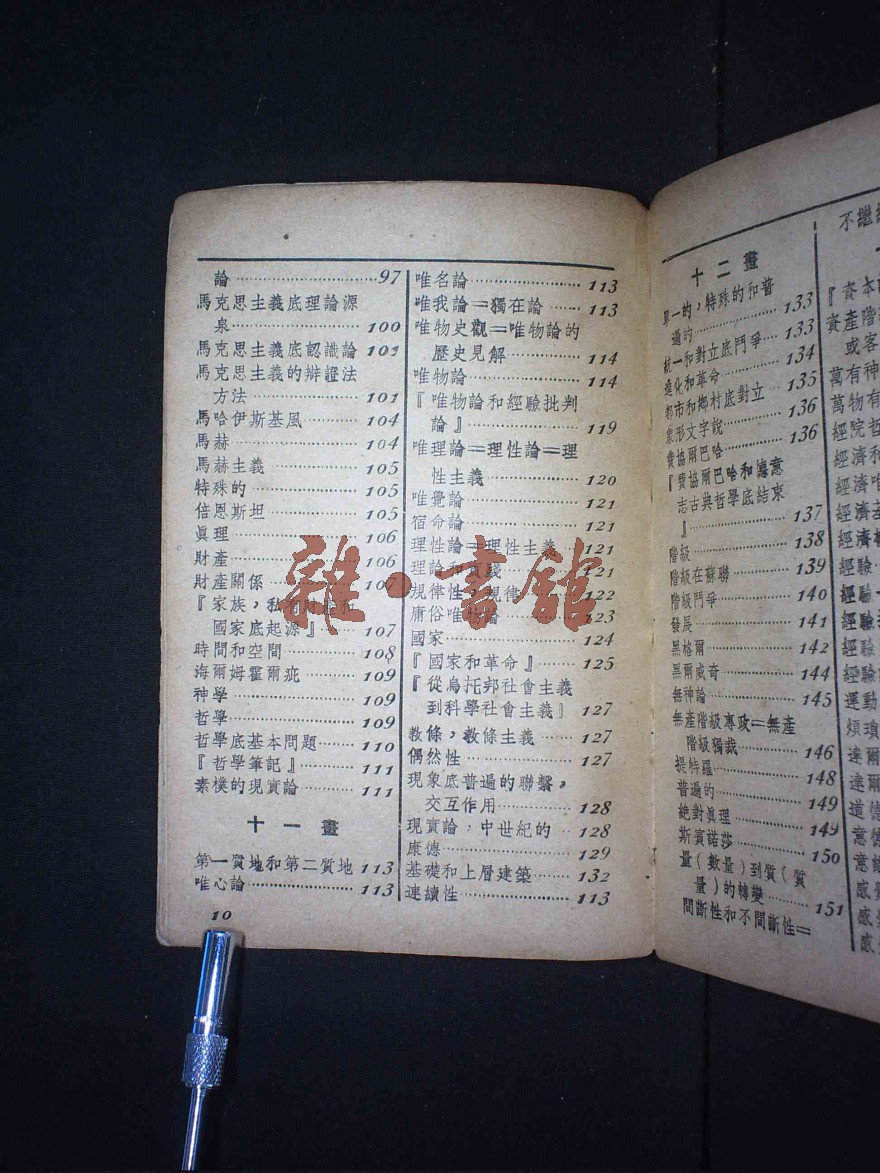 論…………97
馬克思主義底理論源
泉…………100
馬克思主義底認識論 101
馬克思主義的辯證法
方法…………101
馬哈伊斯基風…………104
馬赫…………104
馬赫主義…………105
特殊的…………105
倍恩斯坦…………105
眞理…………106
財產…………106
財產關係…………107
『家族,私有財產和
國家底起源』…………107
時間和空間…………108
海爾姆霍爾疵…………109
神學…………109
哲學…………109
哲學底基本問題…………110
『哲學筆記』…………111
素樸的現實論…………111
十一畫
第一質地和第二質地 113
唯心論…………113
10
唯名論…………113
唯我論=獨在論…………113
唯物史觀=唯物論的
歷史見解…………114
唯物論…………114
『唯物論和經驗批判
論』…………119
唯理論=理性論=理
性主義…………120
唯覺論…………121
宿命論…………121
理性論=理性主義…121
理論和實踐…………121
規律性,規律…………122
庸俗唯物論…………123
國家…………124
『國家和革命』…………125
『從烏托邦社會主義
到科學社會主義』127
教條,教條主義…………127
偶然性…………127
現象底普遍的聯繫,
交互作用…………128
現實論,中世紀的…128
康德…………129
基礎和上層建築…………132
連續性…………113
十二畫
單一的,特殊的和普
遍的…………133
統一和對立底鬥爭…133
進化和革命…………134
都市和鄉村底對立…135
象形文字說…………136
費協爾巴哈…………136
『費協爾巴哈和德意
志古典哲學底結束
』…………137
階級…………138
階級在蘇聯…………139
階級鬥爭…………140
發展…………141
黑格爾…………142
黑爾威奇…………144
無神論…………145
無產階級專政=無產
階級獨裁…………146
提特羅…………148
普遍的…………149
絕對眞理…………149
斯賓諾莎…………150
量(數量)到質(質
量)的轉變…………151
間斷性和不間斷性=
不繼續
『資本
資產階
或客
萬有神
萬物有
經院哲
經濟和
經濟唯
經濟
經濟
經驗
經驗一
經驗
經驗
經驗
運動
煩瑣
達爾
達爾
道德
意德
意
感
感
感